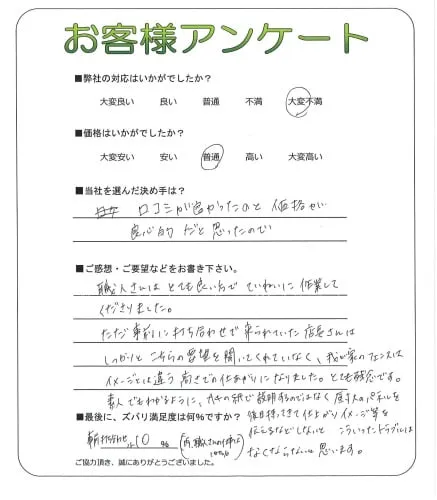 お客様アンケート
■弊社の対応はいかがでしたか?
大変良い 良い 普通 不満 大変不満
■価格はいかがでしたか?
大変安い 安い 普通 高い 大変高い
■当社を選んだ決め手は?
口コミが良かったのと 価格が
良心的 だと 思ったので
■ご感想・ご要望などをお書き下さい。
職人さんは とても良い方で ていねいに 作業して
くださりました。
ただ 事前に打ち合わせで 来られていた 店長さんは
しっかりと こちらの要望を聞いてくれていなく、我が家のフェンスは
イメージとは違う 高さでの仕上がりになりました。とても残念です。
素人でもわかるように、の紙で説明するのではなく 原寸大のパネルを
後日持ってきて 仕上がりイメージ等を
伝えるなどしないと こういったトラブルは
なくならないと思います。
■最後に、ズバリ満足度は何%ですか?
事前打ち合わせ 10 %
ご協力頂き、誠にありがとうございました。